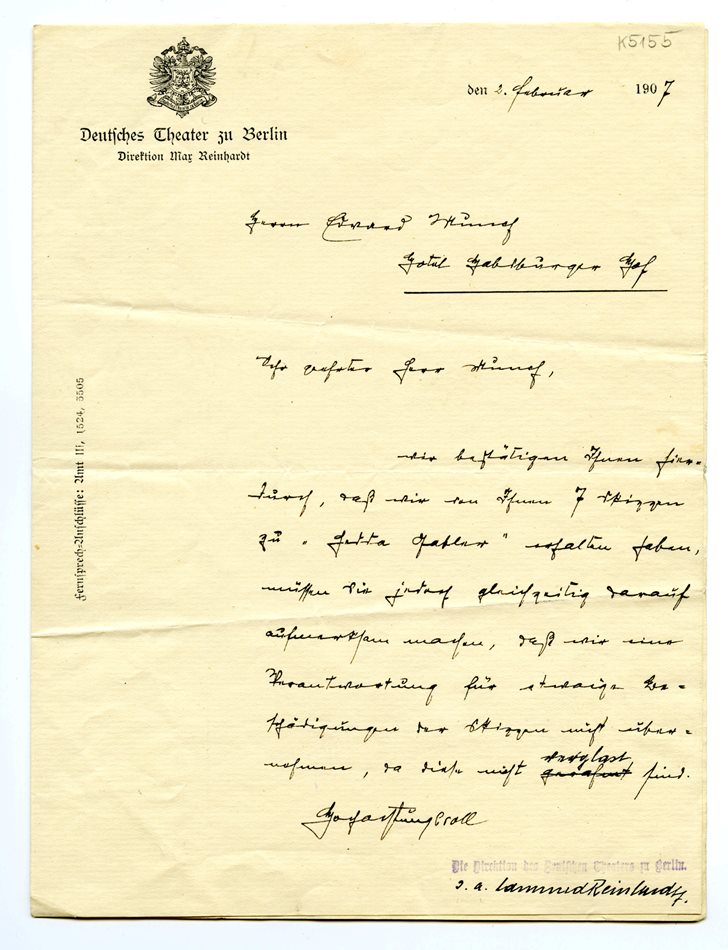 K5155
Deutsches Theater zu Berlin
Direktion Max Reinhardt
den 2. Februar 1907
Herrn Edvard Munch
Hotel Habsburger Hof
Fernsprech-Anschlüsse: Amt III, 1524, 5505
Sehr geehrter Herr Munch,
wir bestätigen Ihnen hier-
durch, daß wir von Ihnen 7 Skizzen
zu "Hedda Gabler" erhalten haben,
müssen Sie jedoch gleichzeitig darauf
aufmerksam machen, daß wir eine
Verantwortung für etwaige Be-
schädigungen der Skizzen nicht über-
nehmen, da diese nicht verglast
gerahmt sind.
Hochachtungsvoll
Die Direktion des Deutschen Theaters zu Berlin.
Reinhardt